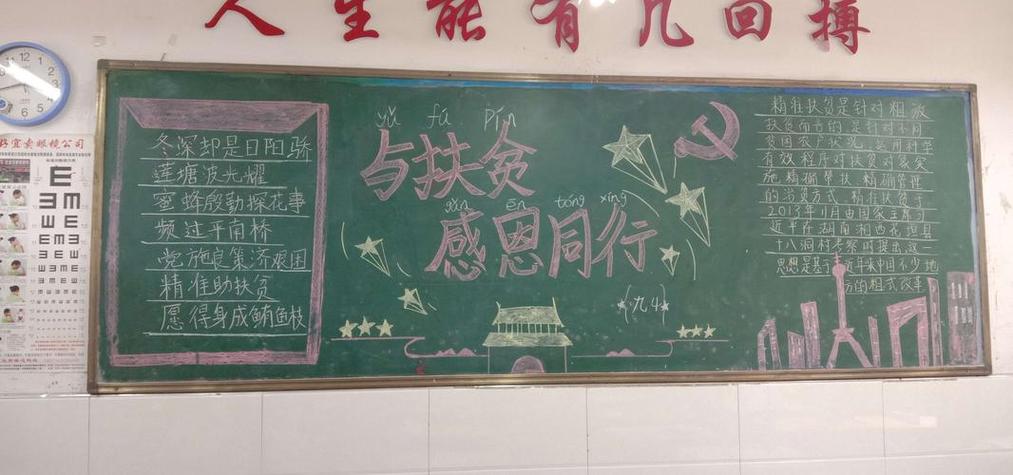 人生能有几回搏
冬深却是日阳骄
莲塘波光耀
蜜蜂殷勤探花事
频过平甬桥
党施良策济艰困
精准助扶贫
愿得身成鲔鱼枝
yǔ fú pín
与扶贫
gǎn ēn tóng xíng
感恩同行
九.4
精准扶贫是针对粗放
扶贫而言的,是针对不同
贫困农户状况,运用科学
有效程序对扶贫对象实
施精确帮扶、精确管理
的治贫方式,精准扶贫于
2013年11月由国家主席习
近平在湖南湘西花垣县
十八洞村考察时提出,这一
思想是基于近年来中国不少地
方的粗式改革
好宜卖眼镜公司
E
E M
W E
E M E